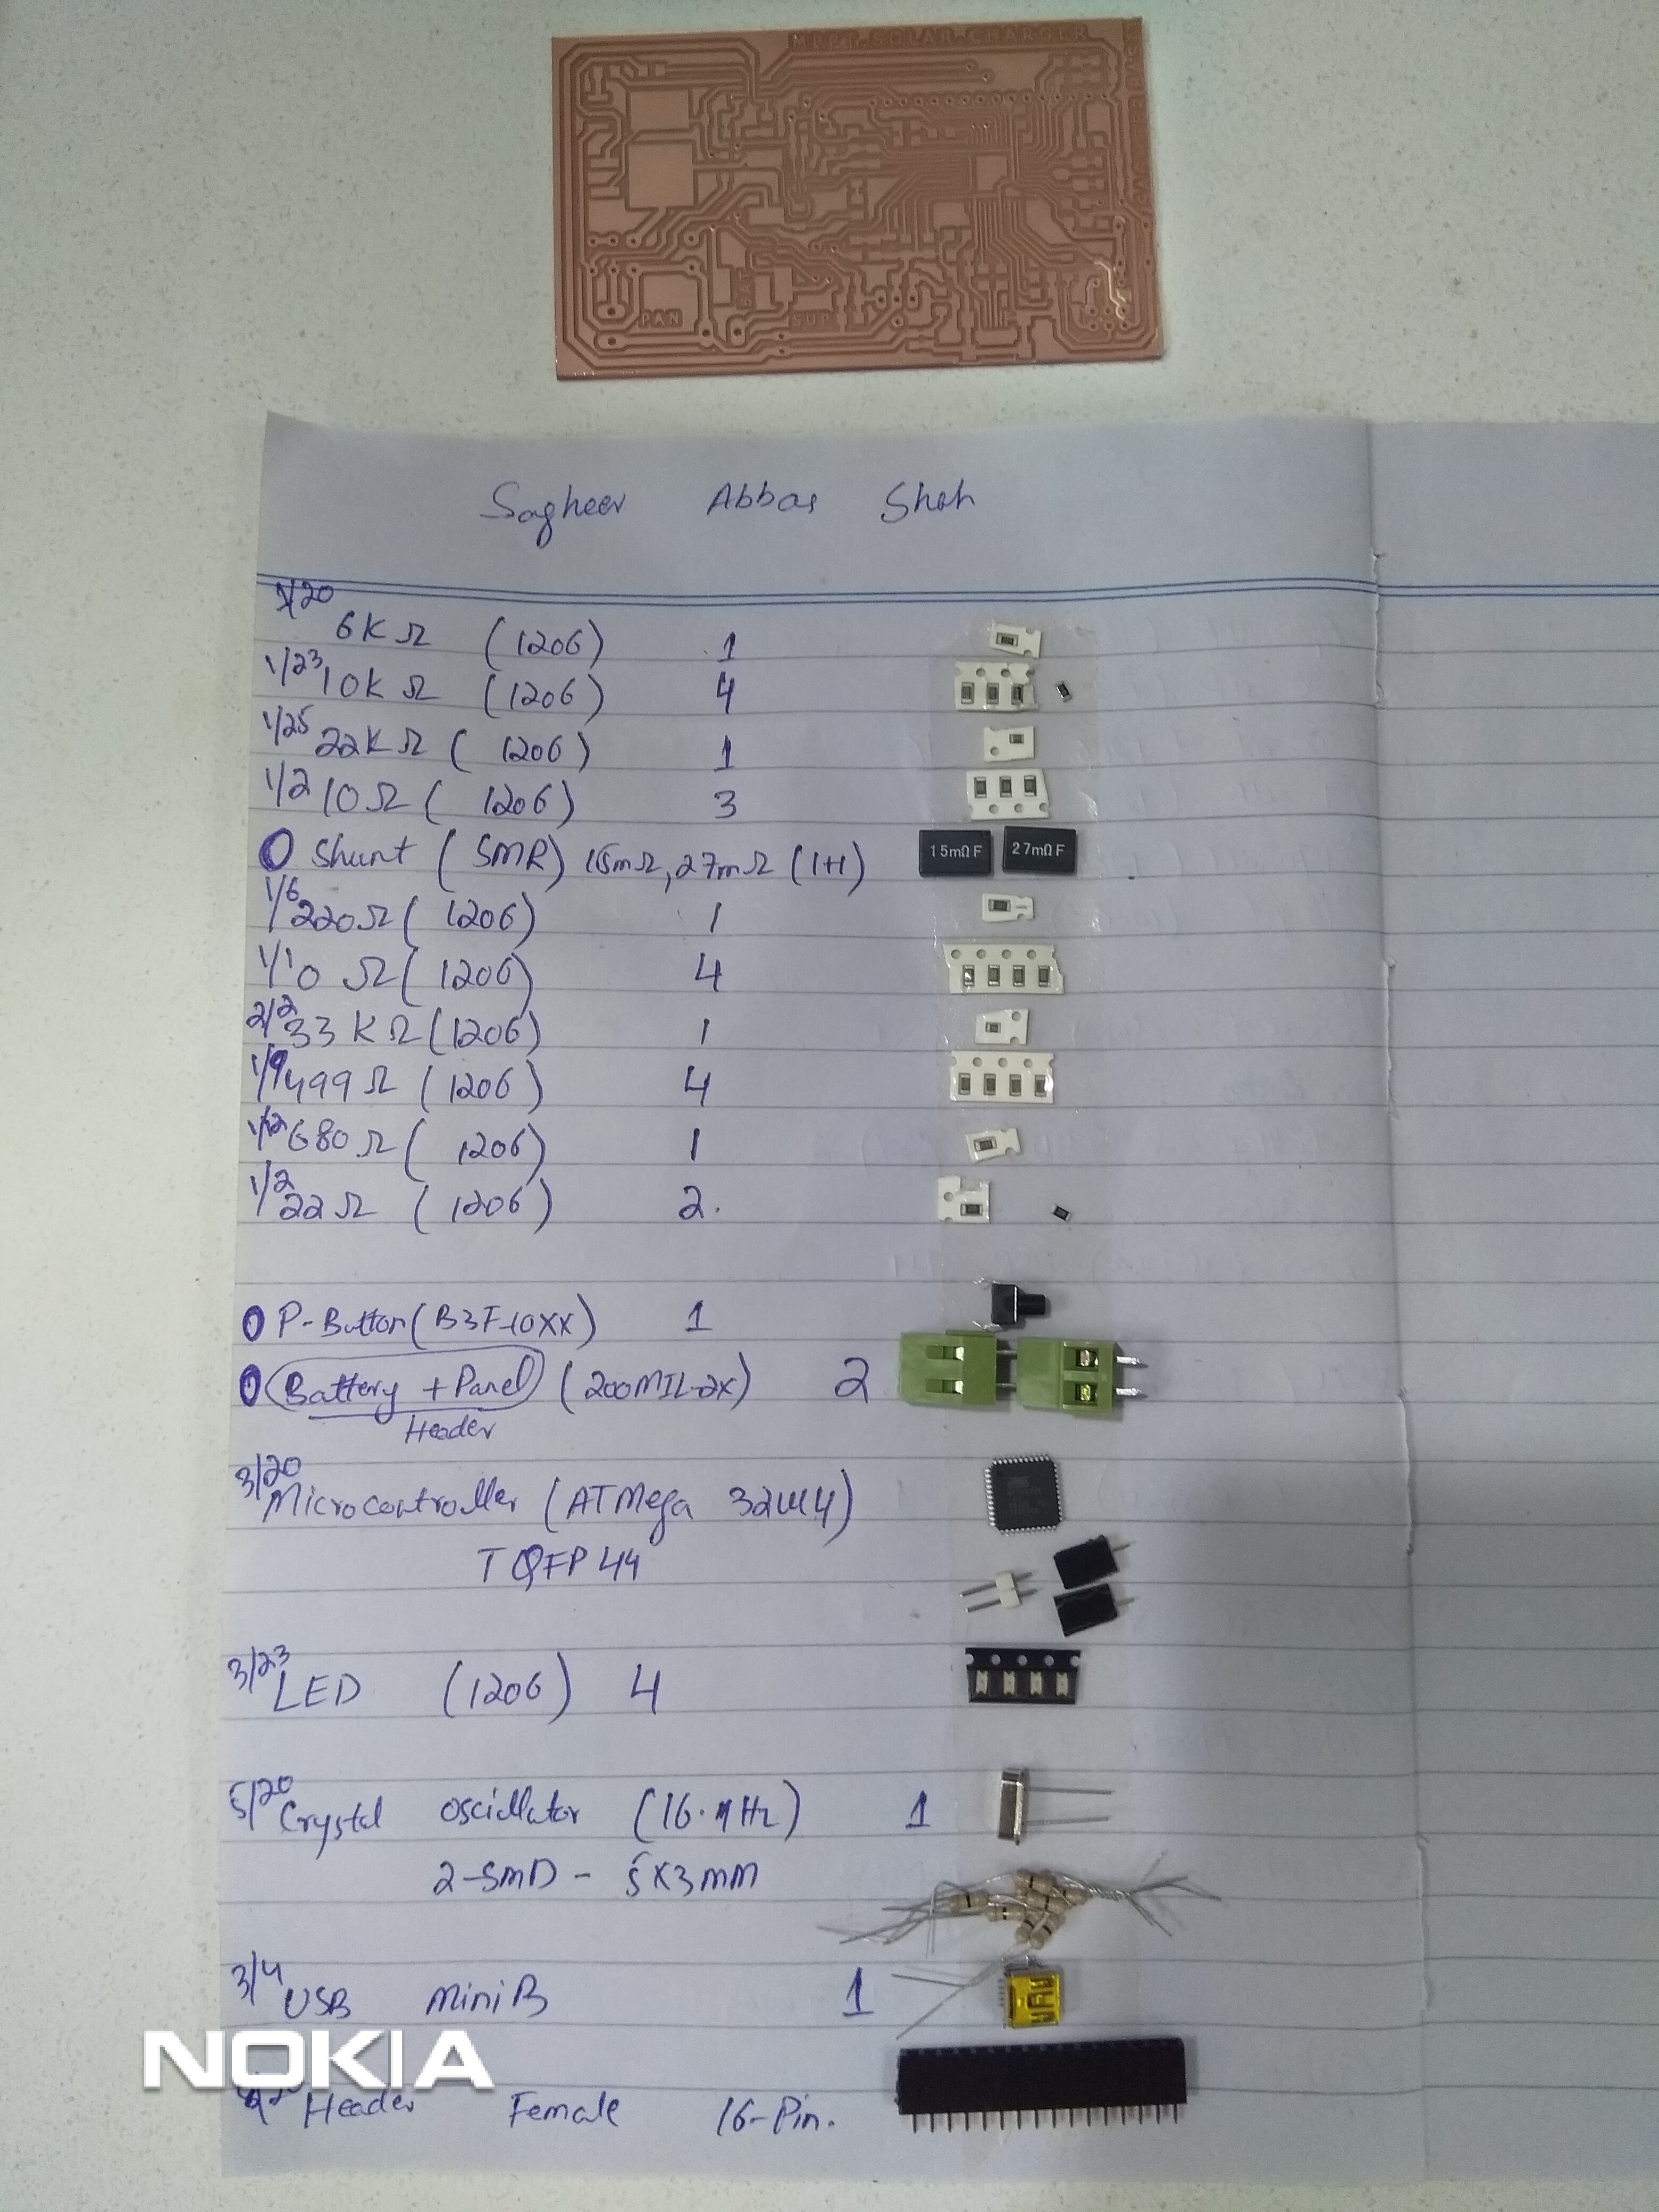 MPPT SOLAR CHARGER
PAN
BAT
SUP
Sagheer Abbas Shah
1/20
6K Ω (1206) 1
1/23 10K Ω (1206) 4
1/25 22K Ω (1206) 1
1/2 10 Ω (1206) 3
Shunt (SMR) 15mΩ, 27mΩ (1+1)
15mΩ F 27mΩ F
1/6 220 Ω (1206) 1
1/1 0 Ω (1206) 4
2/2 33 K Ω (1206) 1
1/9 499 Ω (1206) 4
1/12 680 Ω (1206) 1
1/2 22 Ω (1206) 2.
P-Button (B3F-10XX) 1
Battery + Panel (200MIL-2X) 2
Header
3/20
Microcontroller (ATMega 32U4)
TQFP 44
3/23 LED (1206) 4
5/20 Crystal oscillator (16.MHz) 1
2-SMD - 5X3mm
3/4 USB Mini B 1
Header Female 16-Pin.
NOKIA